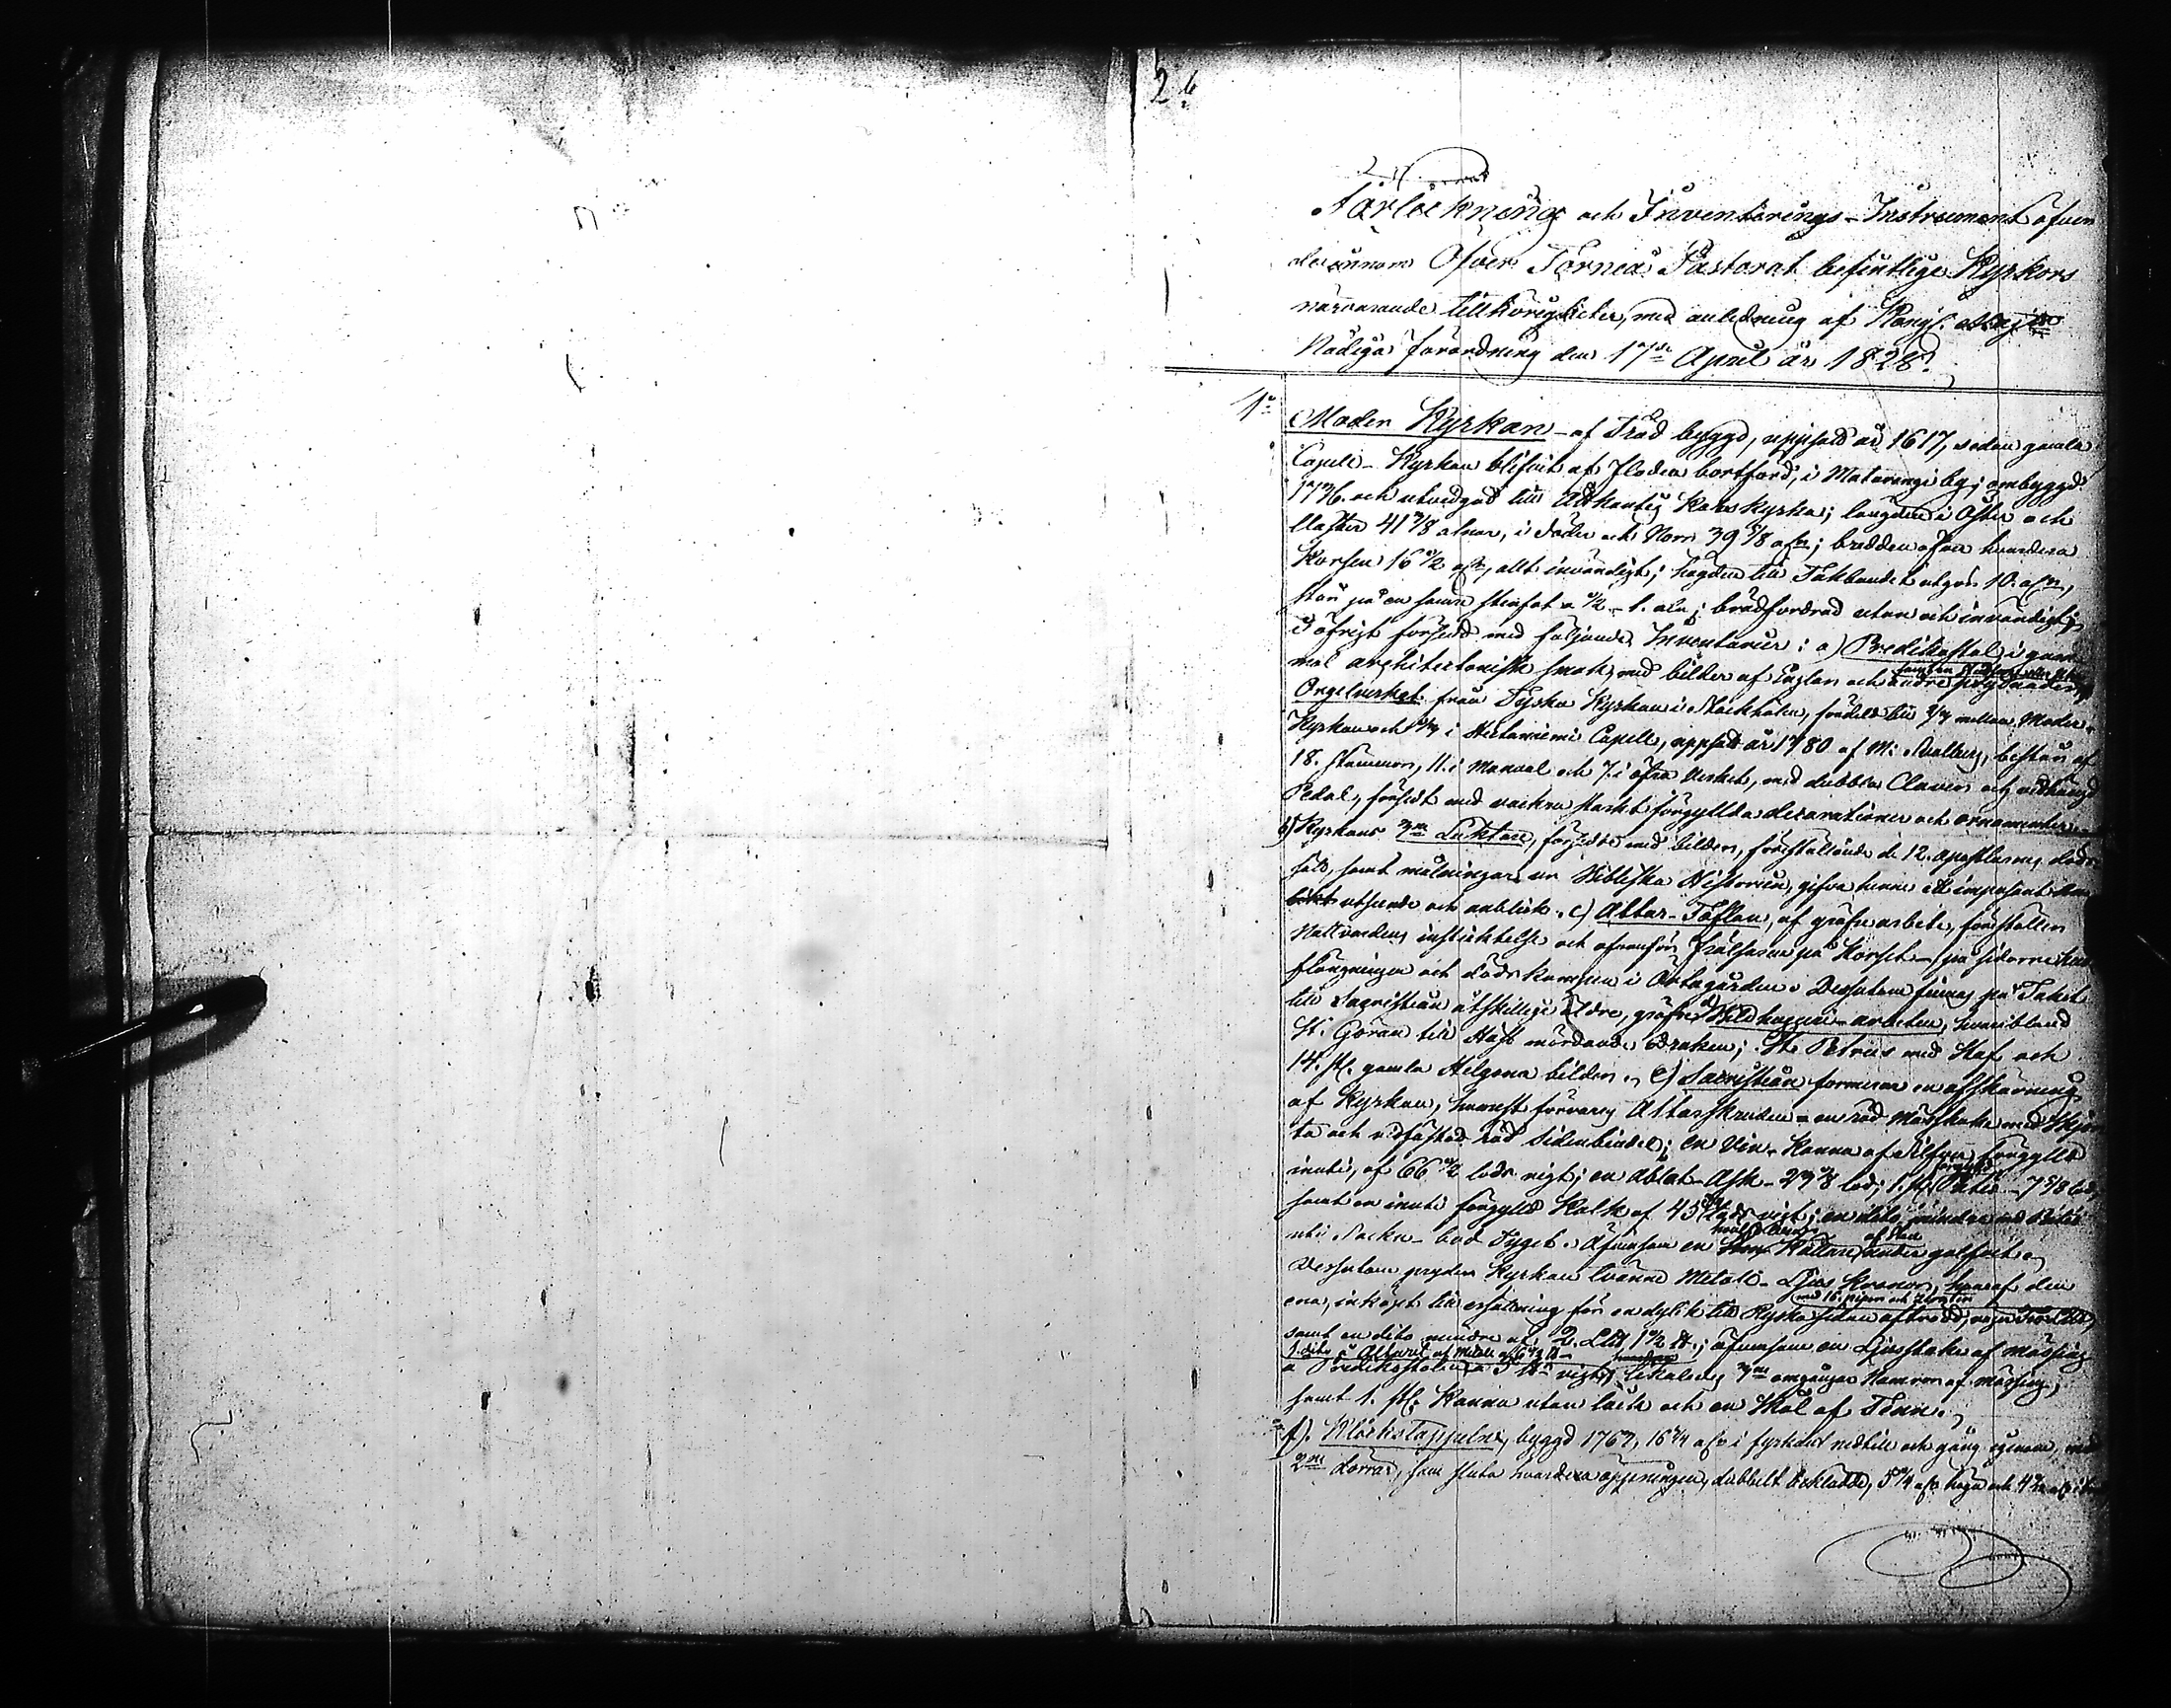 2
Förteckning och Inventerings-Instrument öfver
de innom Öfver Torneå Pastorat befintlige Kyrkors
närvarande tillhörigheter, med anledning af Kongl. Maj:ts
Nådiga förordning den 17de April år 1828.
1o Moder Kyrkan - af Träd byggd, uppsatt år 1617, sedan gamla
Capell-Kyrkan blifvit af floden bortförd, i Matarengi by; ombyggd
1736. och utvidgad till Åttkantig Kors kyrka; längden i Öster och
Wäster 41 7/8 alnar, i Söder och Norr 39 5/8 aln; bredden öfver hvardera
Korsen 16 1/2 aln, allt invändigt; högden till Takbandet utgör 10. aln,
står på en stenfot a 1/2 - 1. aln; brädfordrad utan och invändigt,
i öfrigt försedd med följande Inventarier: a) Predikostol i gam-
mal architectonisk smak, med bilder af Englar och andre prydnader,
Orgelverket från Tyska Kyrkan i Stockholm, fördelt till mellan Moder-
Kyrkan och i Hietaniemi Capell, uppsatt år 1780 af M: Svalberg, består af
18. Stämmor, 11. i Manual och 7. i öfra Verket, med dubbla Claver och vidhängd
Pedal, försedt med vackra starkt förgyllda decorationer och ornamenter
b) Kyrkans Lecktare, försedde med bilder, föreställande de 12. Apostlarne,
samt målningar ur Bibliska Historien, gifva henne ett imposant
utseende och anblick. c) Altar-Taflan, af gräfne arbete, föreställer
Nattvardens instiktelse och ofvanför Frälsaren på Korset - på sidorne
flängningen och Dödskampen i Örtagården. Dessutom finnes på Taket
till Sacristian åtskillige äldre, gräfne Bildhuggeri-arbeten, hvaribland
St. Göran till Häst mördande Draken; St. Petrus med Staf och
14. st. gamla Helgona bilder. e) Sacristian formerar en afskärning
af Kyrkan, hvarest förvaras Altarskruden - en röd Mässhake med Skjor-
ta och vidfästad röd Sidenbindel; en Vin-Kanna af Silfver, förgylld
inuti, af 66 1/2 lods vigt; en Ablat-Ask - 27 lod; 1. st. Patén - 7 5/8 lod
samt en inuti förgylld Kalk af 45 lods vigt; en dito mindre med Patén
uti Socken-bud Tyget. Äfvensom en Källare under golfvet
af Sten
Dessutom pryder Kyrkan tvänne Metall-Ljus Kronor, hvaraf den
ena, inköpt till ersättning för en dylik till Ryska sidan afträdd,
med 16. pipor och
samt en dito mindre af 2. L℔ 1 1/2 ℔.; äfvensom en Ljusstake af mässing
1. dito å Altaret af Metall
å Predikstolen a 5 ℔ vigt, omgångar Hamrar af mässing,
samt 1. st. Kanna utan lock och en Skål af Tenn.
f). Klockstappeln, byggd 1767, 16 3/4 aln i fyrkant nedtill och gång igenom, med
2ne dörrar, som sluta hvardera öppningen, dubbelt beklädde, 5 1/4 aln höga och